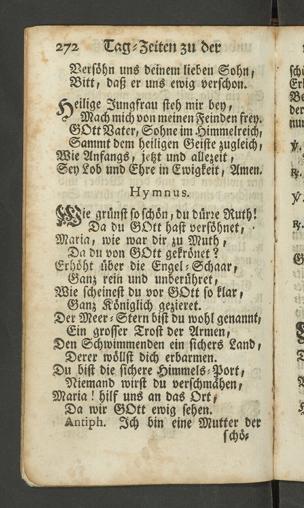 272 Tag-Zeiten zu der
Versöhn uns deinem lieben Sohn,
Bitt, daß er uns ewig verschon.
Heilige Jungfrau steh mir bey,
Mach mich von meinen Feinden frey.
GOtt Vater, Sohne im Himmelreich,
Sammt dem heiligen Geiste zugleich,
Wie Anfangs, jetzt und allezeit,
Sey Lob und Ehre in Ewigkeit, Amen.
Hymnus.
Wie grünst so schön, du dürre Ruth!
Da du GOtt hast versöhnet,
Maria, wie war dir zu Muth,
Da du von GOtt gekrönet?
Erhöht über die Engel-Schaar,
Ganz rein und unberühret,
Wie scheinest du vor GOtt so klar,
Ganz Königlich gezieret.
Der Meer-Stern bist du wohl genannt,
Ein grosser Trost der Armen,
Den Schwimmenden ein sichers Land,
Derer wöllst dich erbarmen.
Du bist die sichere Himmels-Port,
Niemand wirst du verschmähen,
Maria! hilf uns an das Ort,
Da wir GOtt ewig sehen.
Antiph. Ich bin eine Mutter der
schö-